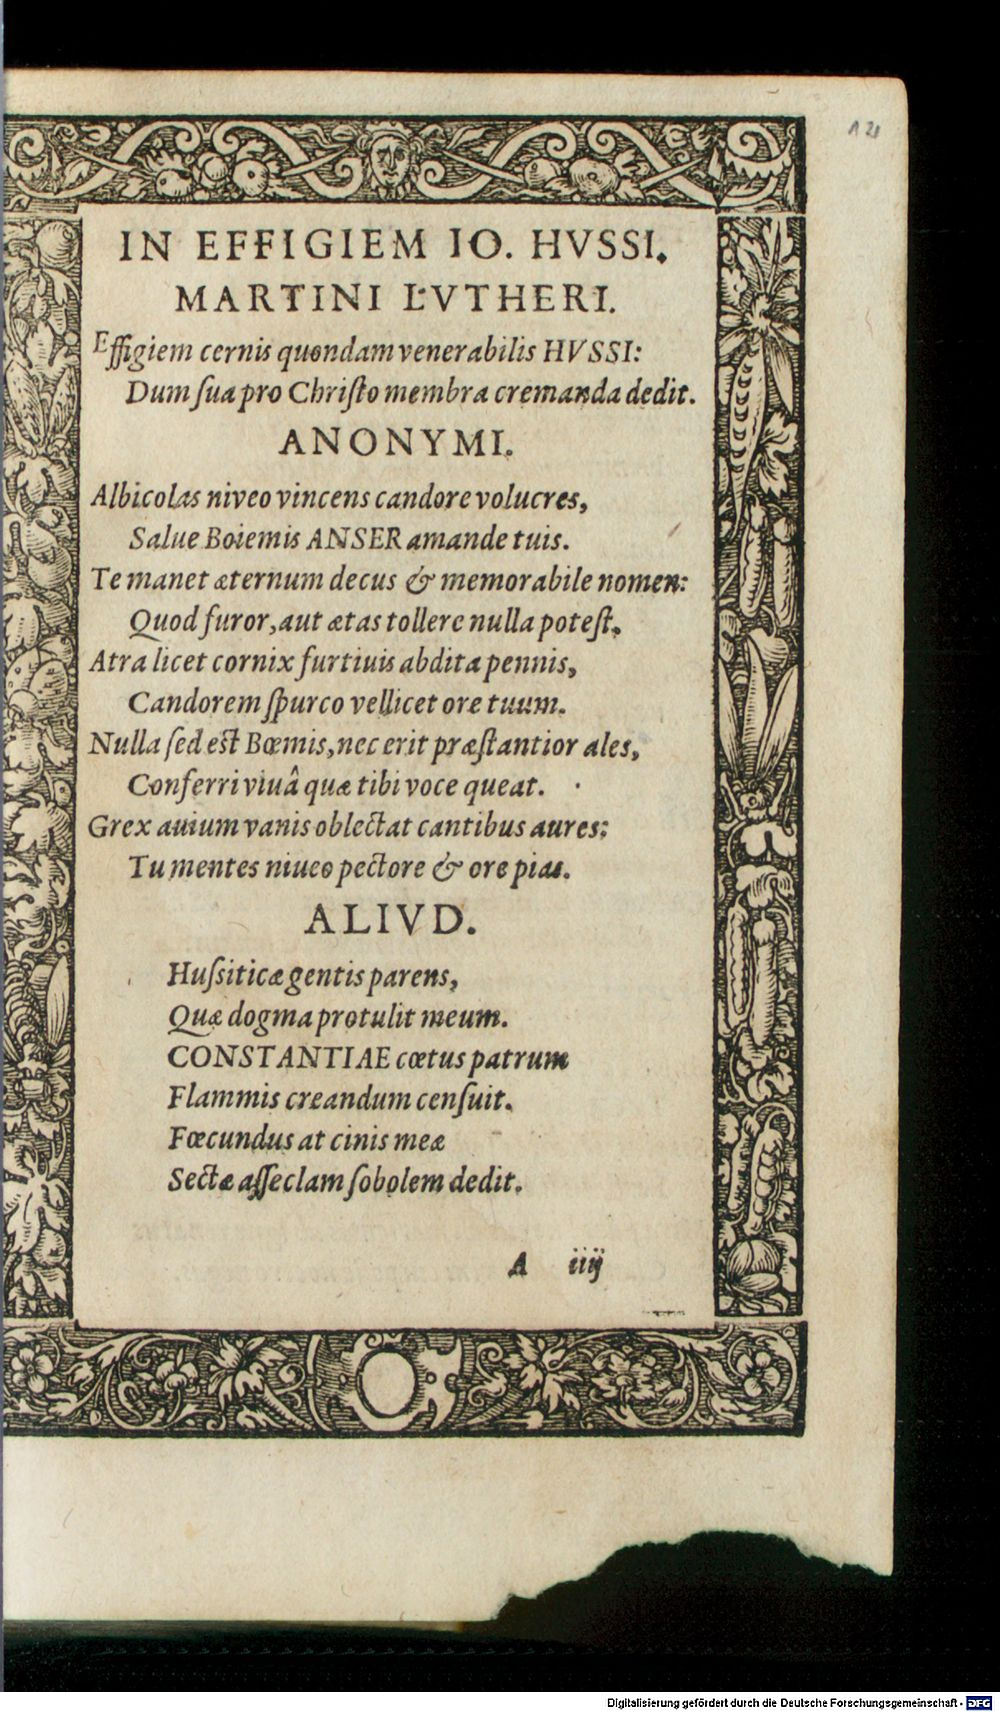 A 21
IN EFFIGIEM IO. HVSSI.
MARTINI LVTHERI.
Effigiem cernis quondam venerabilis HVSSI:
Dum ſua pro Chriſto membra cremanda dedit.
ANONYMI.
Albicolas niveo vincens candore volucres,
Salue Boiemis ANSER amande tuis.
Te manet æternum decus & memorabile nomen:
Quod furor, aut ætas tollere nulla poteſt.
Atra licet cornix furtiuis abdita pennis,
Candorem ſpurco vellicet ore tuum.
Nulla ſed eſt Bœmis, nec erit præſtantior ales,
Conferri viuâ quæ tibi voce queat.
Grex auium vanis oblectat cantibus aures:
Tu mentes niueo pectore & ore pias.
ALIVD.
Huſsiticæ gentis parens,
Quæ dogma protulit meum.
CONSTANTIAE cœtus patrum
Flammis creandum cenſuit.
Fœcundus at cinis meæ
Sectæ aſſeclam ſobolem dedit.
A iiij
Digitalisierung gefördert durch die Deutsche Forschungsgemeinschaft - DFG